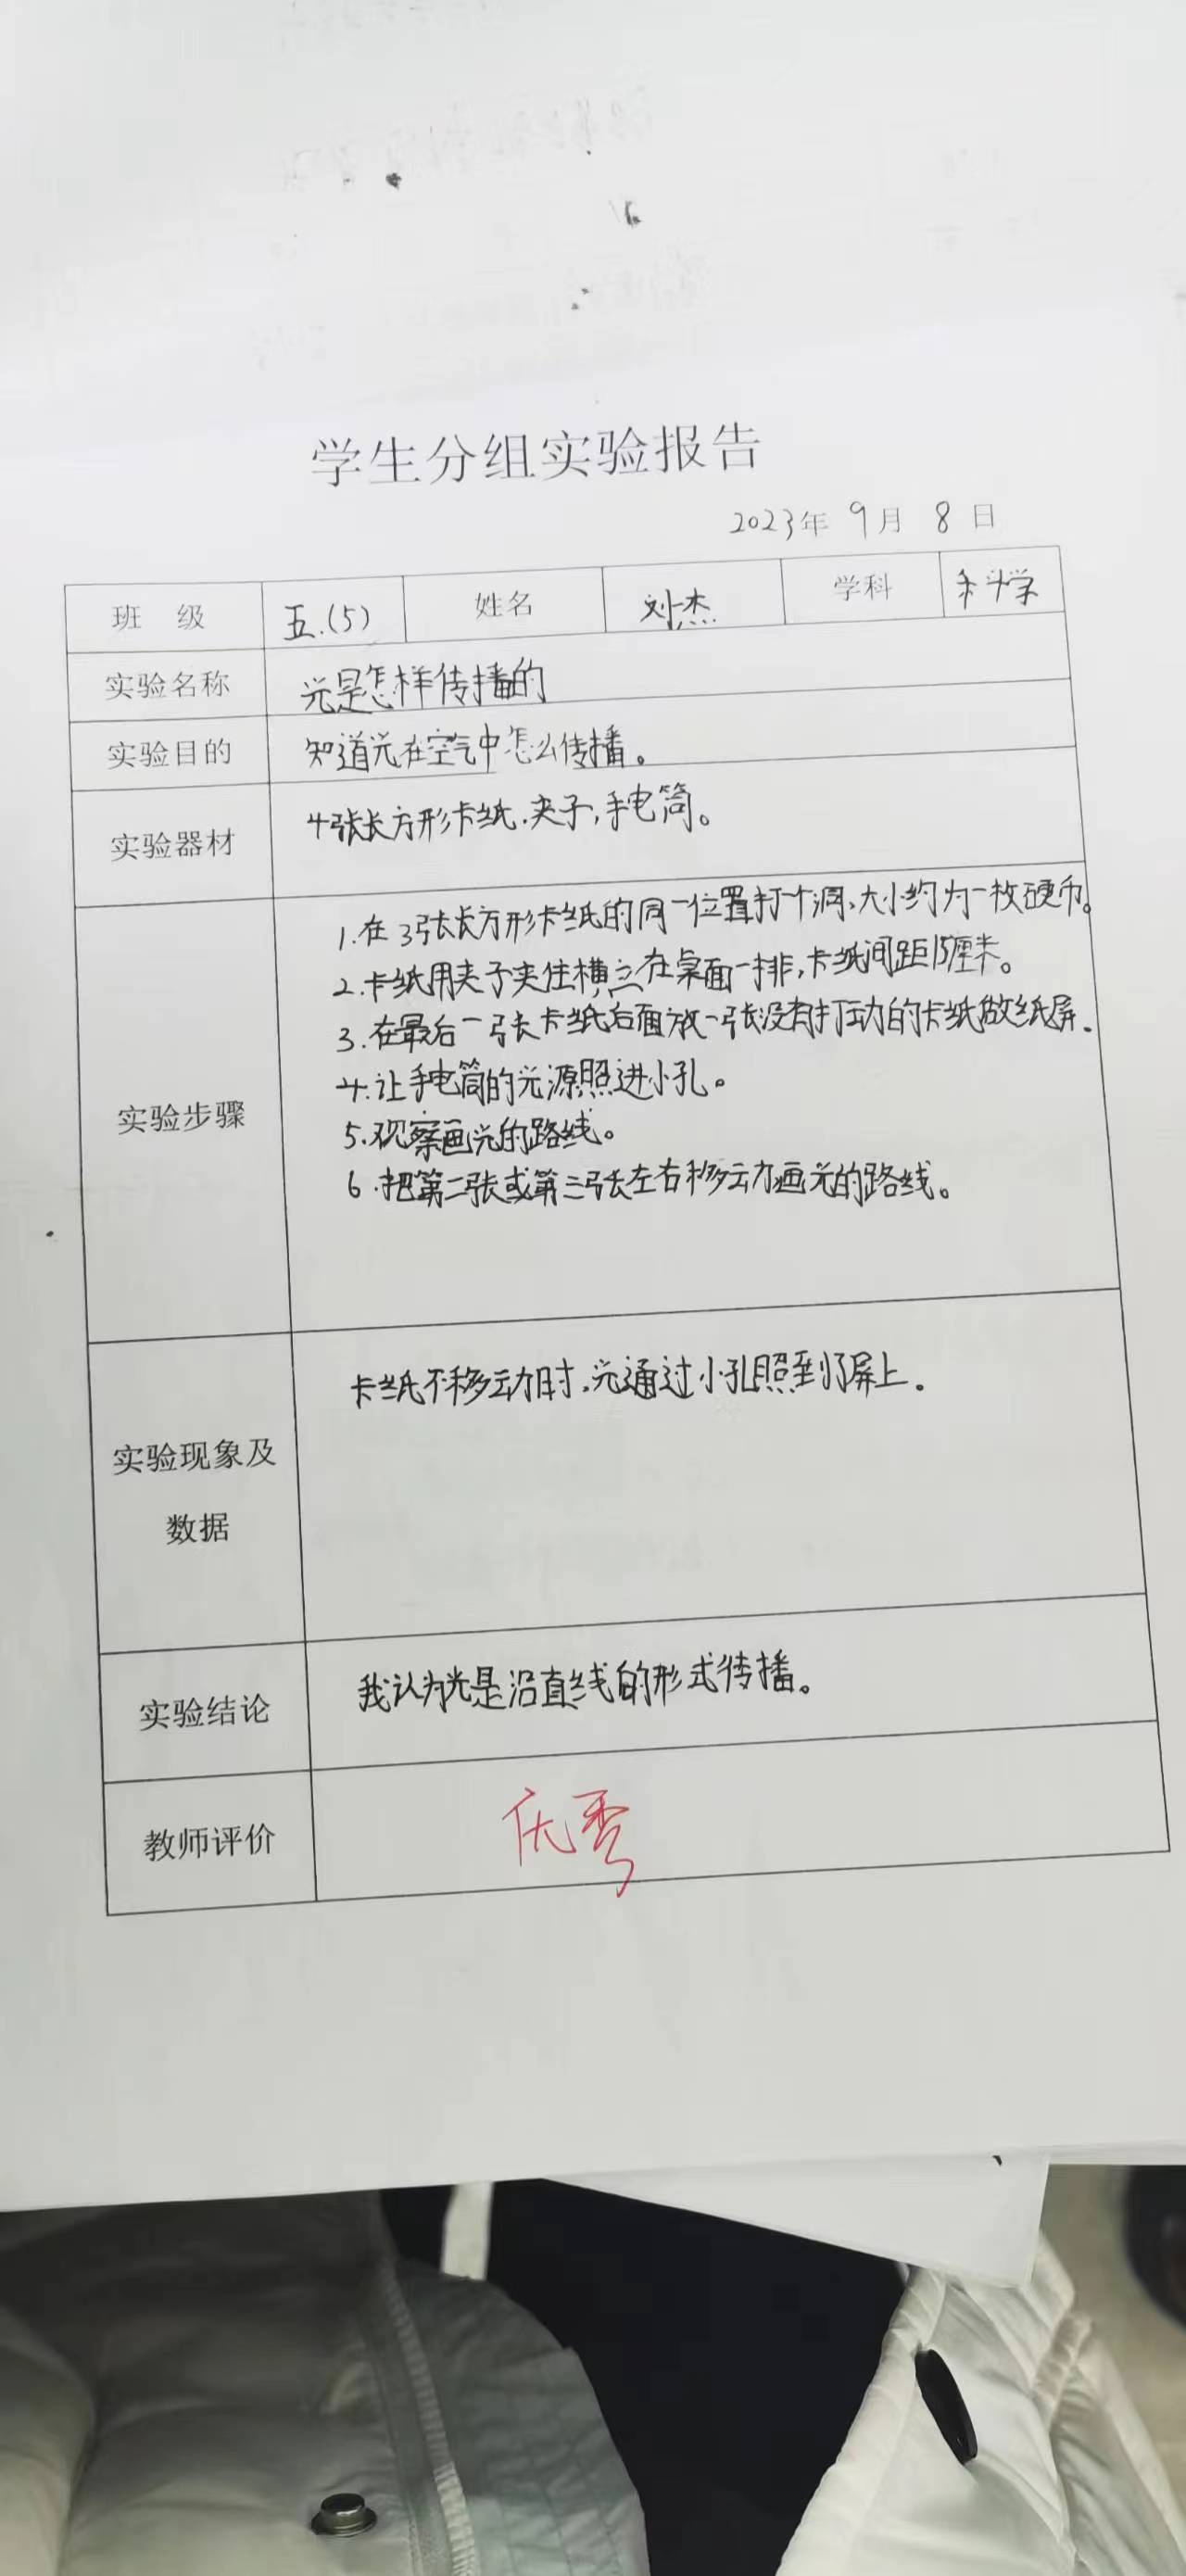 学生分组实验报告
2023年 9月 8日
班 级 五.(5) 姓名 刘杰 学科 科学
实验名称 光是怎样传播的
实验目的 知道光在空气中怎么传播。
实验器材 4张长方形卡纸.夹子,手电筒。
实验步骤
1.在3张长方形卡纸的同一位置打个洞、大小约为一枚硬币。
2.卡纸用夹子夹住横立在桌面一排,卡纸间距15厘米。
3.在最后一张卡纸后面放一张没有打动的卡纸做纸屏.
4.让手电筒的光源照进小孔。
5.观察画光的路线。
6.把第二张或第三张左右移动画光的路线。
实验现象及
数据
卡纸不移动时,光通过小孔照到了屏上.
实验结论 我认为光是沿直线的形式传播。
教师评价 优秀